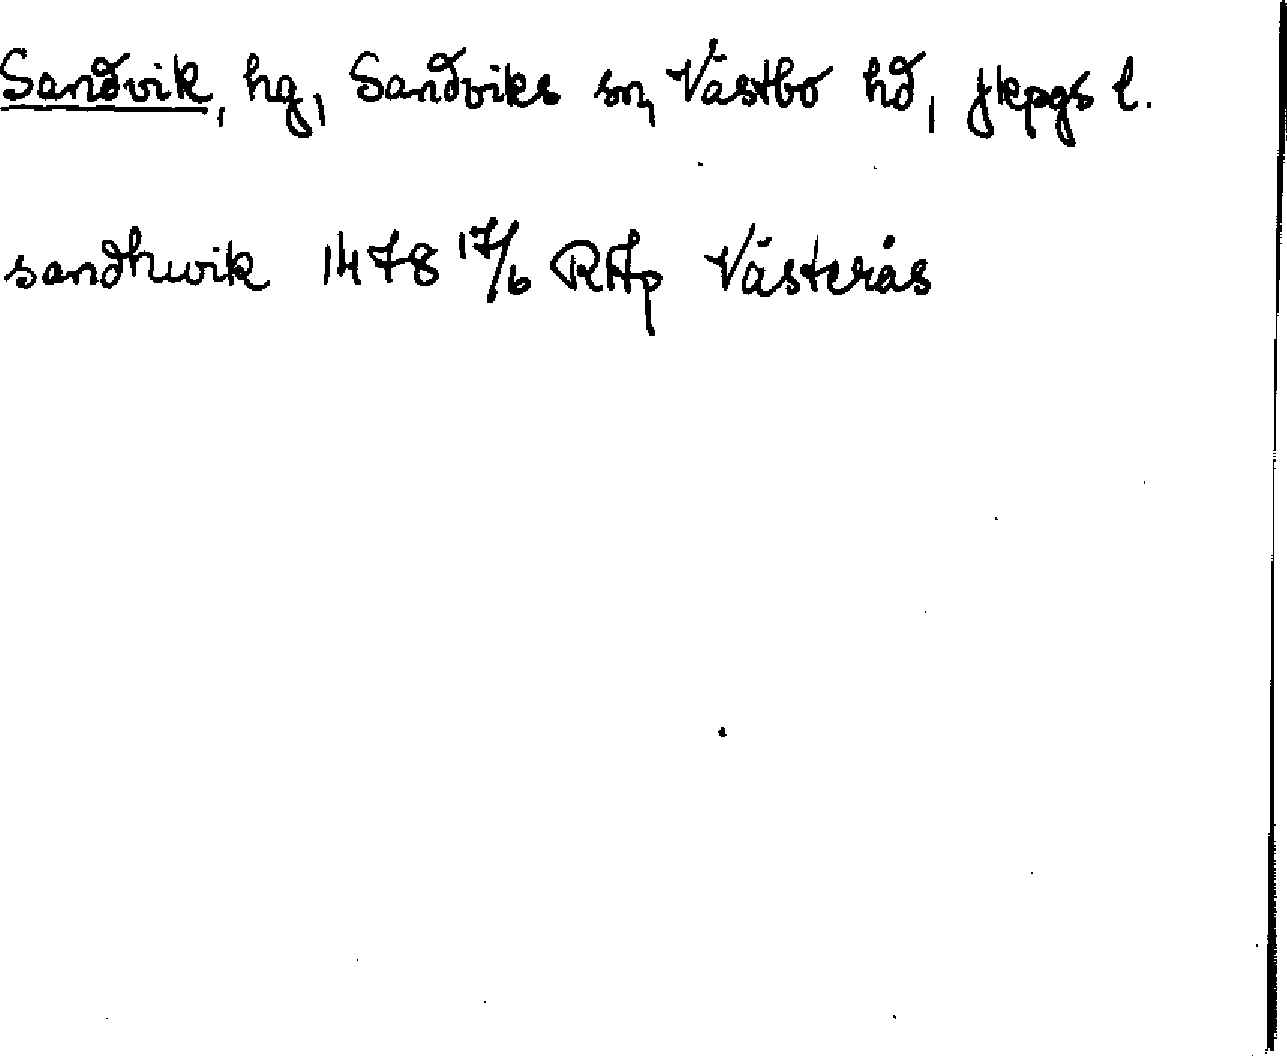 Sandvik, hg, Sandviks sn, Västbo hd, Jkpgs l.
sandhwik 1478 17/6 RAp Västerås